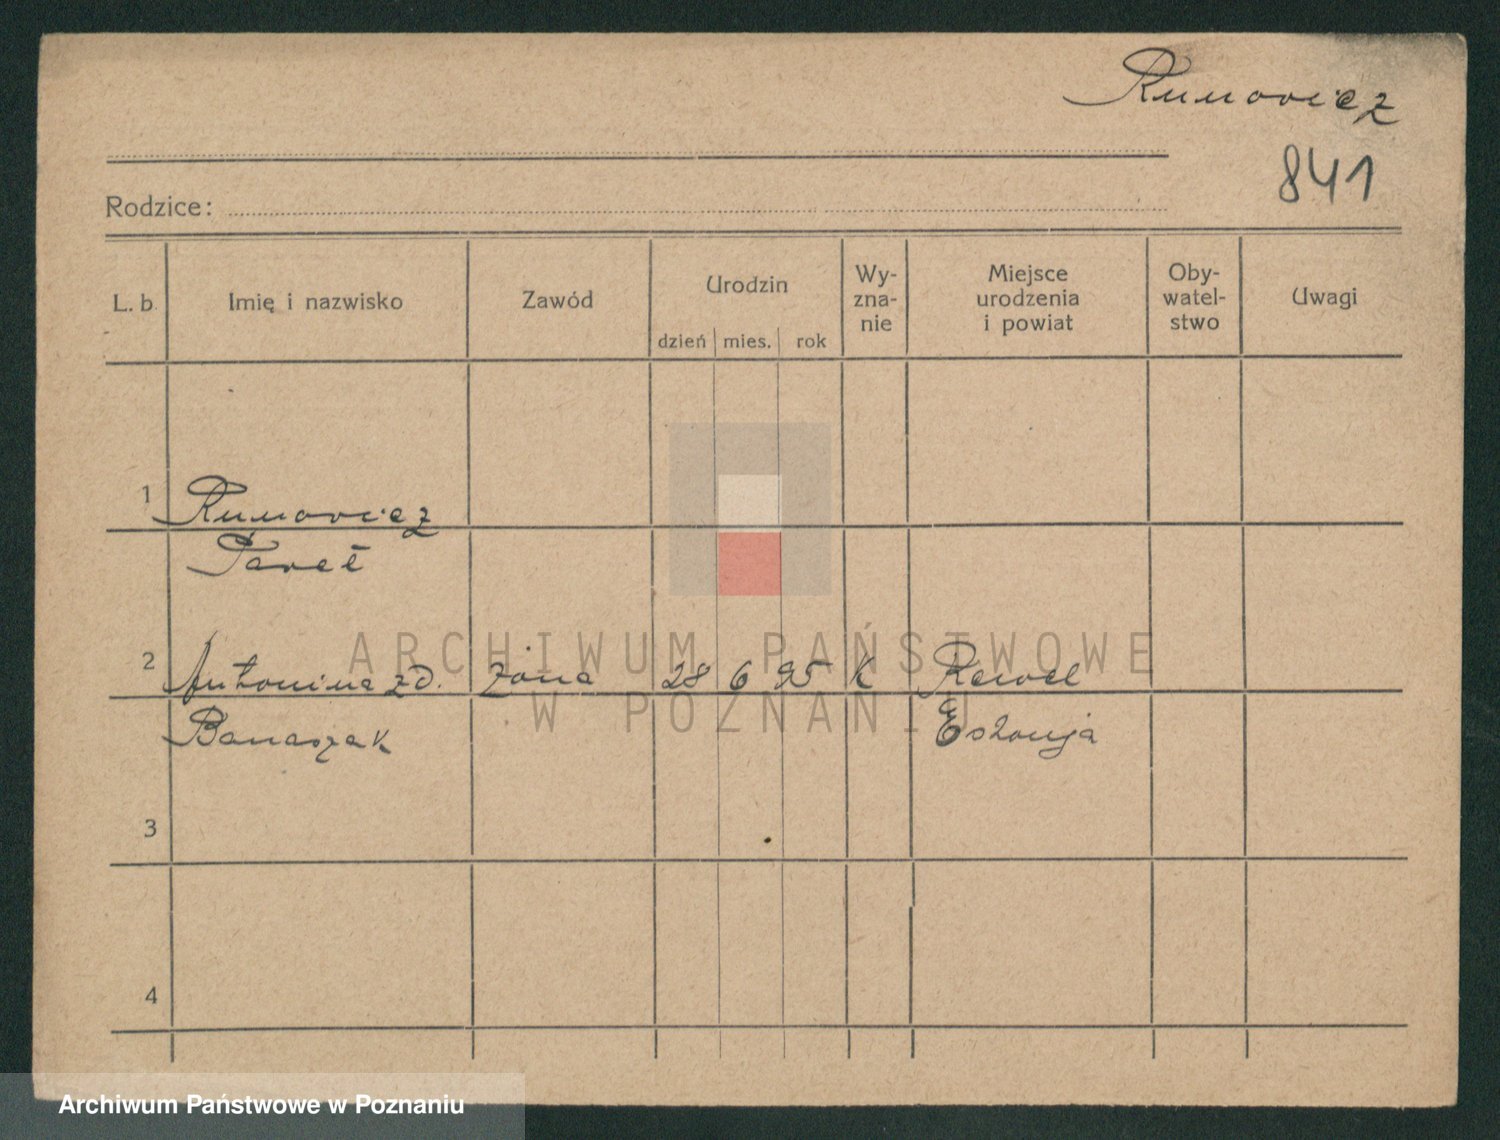 Rumowicz
841
Rodzice:
L. b. Imię i nazwisko Zawód Urodzin Wy-zna-nie Miejsce urodzenia i powiat Oby-watel-stwo Uwagi
dzień mies. rok
1 Rumowicz
Paweł
ARCHIWUM PAŃSTWOWE
2 Antonina zd. żona 28 6 95 K Rewel
W POZNANIU
Banaszak Estonja
3
4
Archiwum Państwowe w Poznaniu